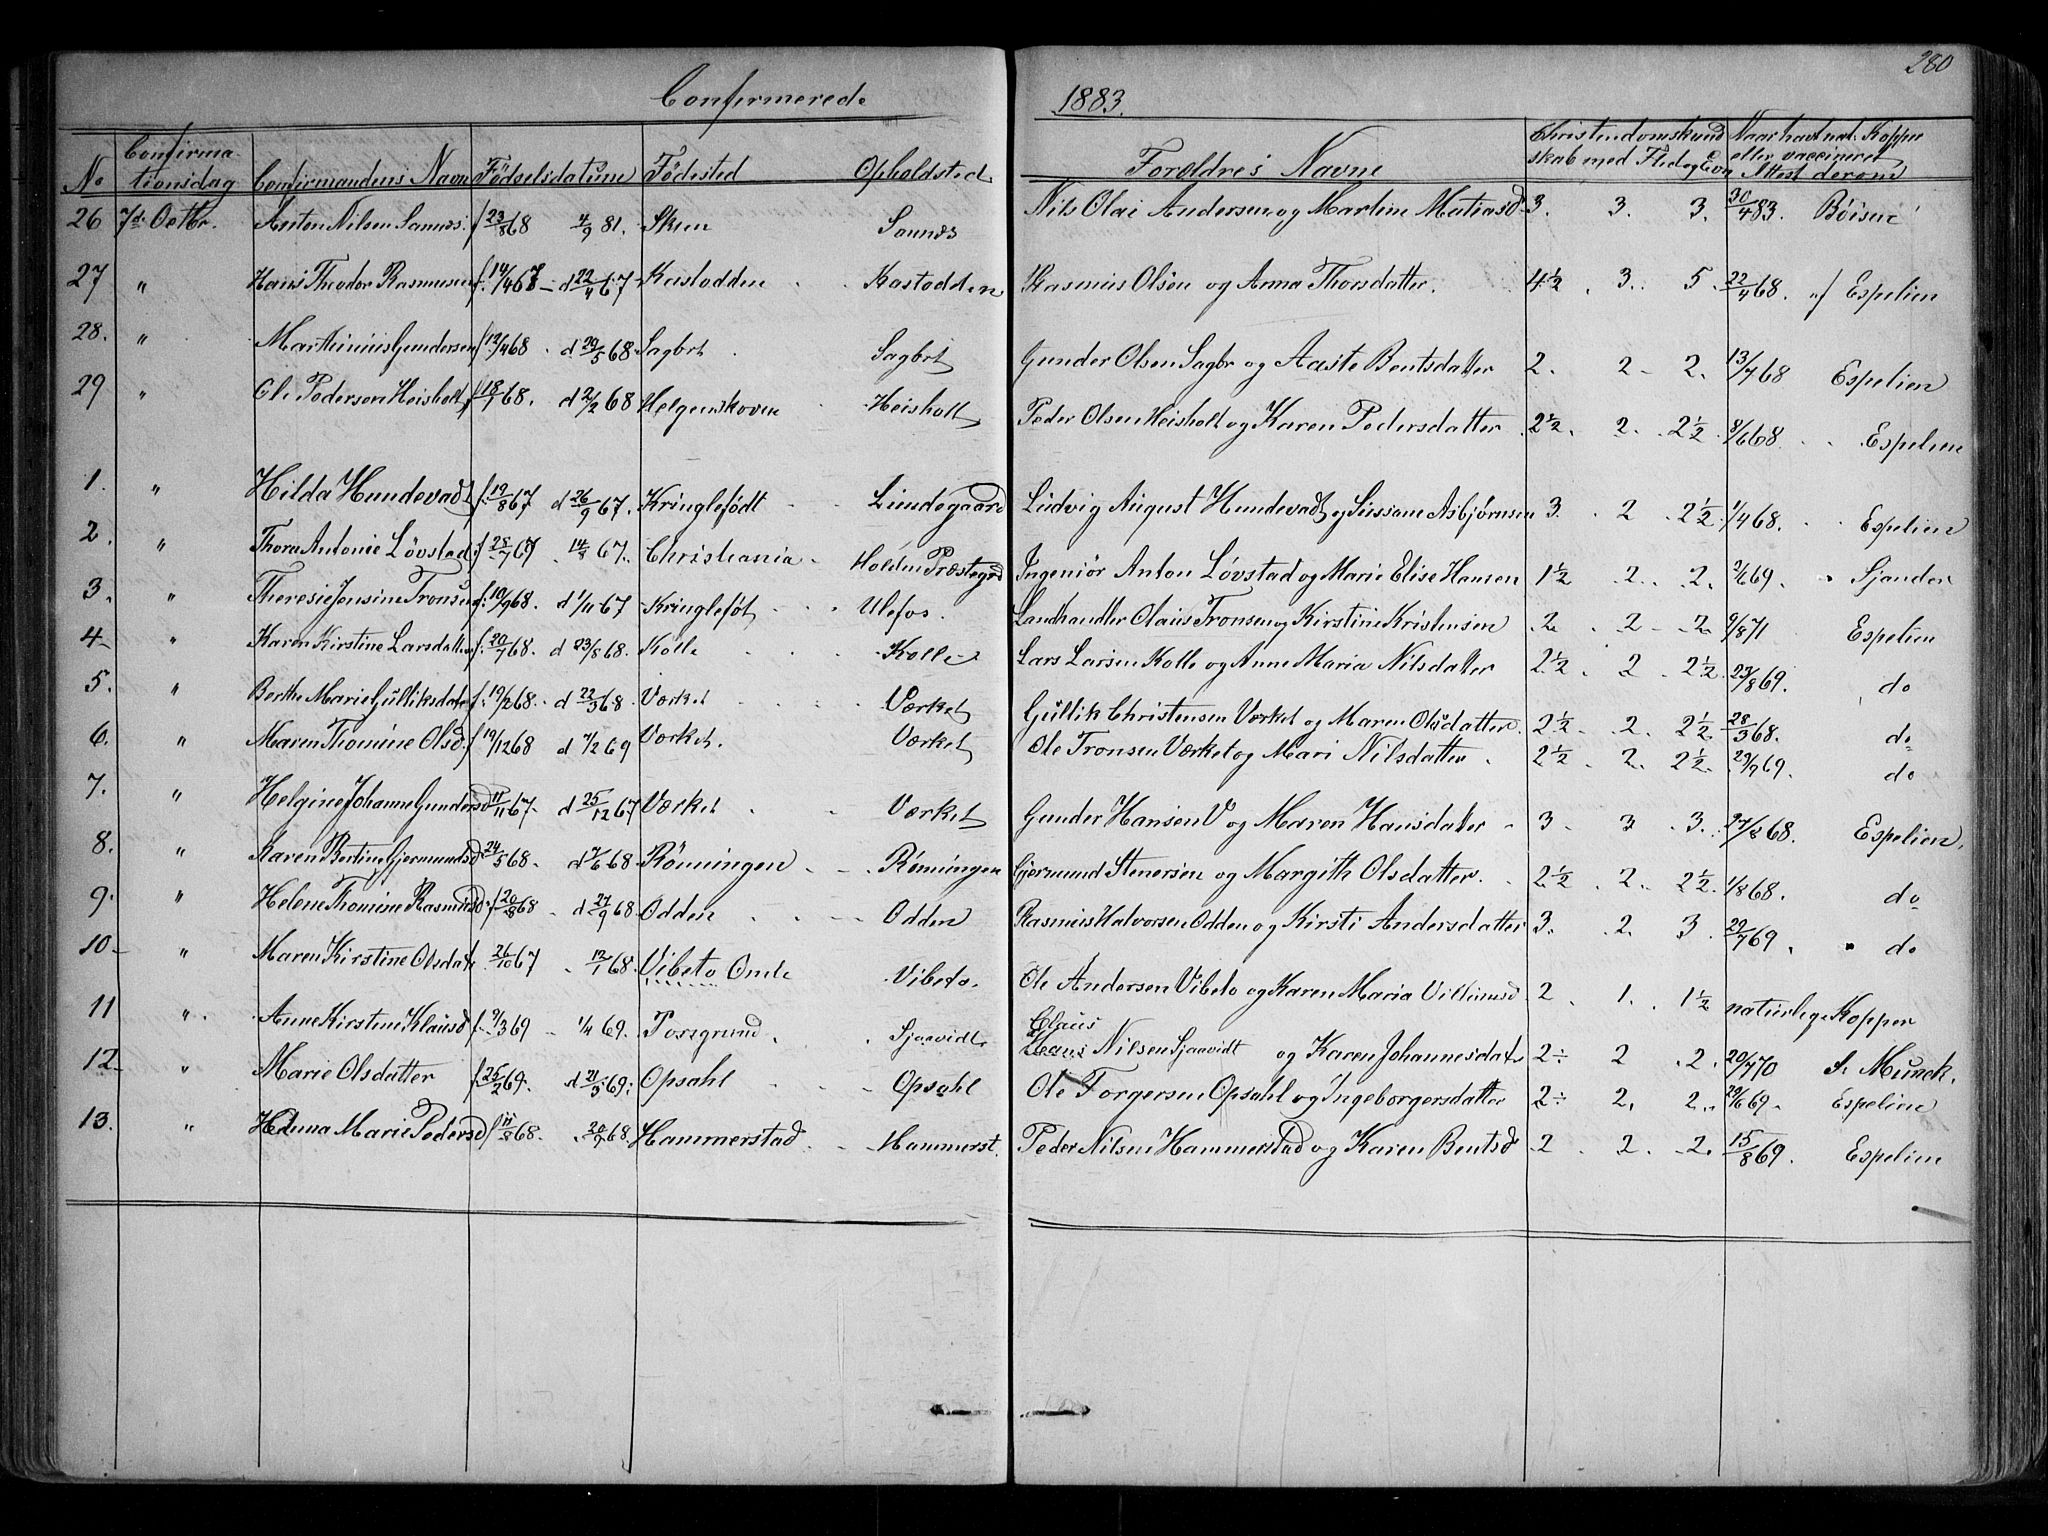 280
Confirmerede 1883.
No Confirmationsdag Confirmandens Navn Fødselsdatum Fødested Opholdsted Forældres Navne Christendomskundskab med Flid og Evn Naar havt nat. Kopper eller vaccineret Attest derom
26 7d Octbr. Anton Nilsen f 23/8 68 4/9 81. Skien Nils Olai Andersen og Martine Matiasd 3. 3. 3. 30/4 83. Böisen
27 " Hans Theodor Rasmusen f. 14/4 67 - d 22/4 67 - Rasmus Olsön og Anna Thorsdatter. 4½ . 3. 5. 22/4 68. Espelien
28. " Marthinius Gundersen f 12/4 68 . d 29/5 68 Sagbrt Sagbrt Gunder Olsen Sagbr og Aaste Bentsdatter 2. 2 - 2. 13/7 68 Espelien
29 " Ole Pedersen Heisholt f 18/1 68. d 2/2 68 Helgenskoven Heisholt Peder Olsen Heisholt og Karen Pedersdatter 2½. 2. 2½. 8/6 68. Espelien
1. " Hilda Hundevadt f. 19/8 67 d 26/9 67. Kringlefödt Lindegaard Ludvig August Hundevadt og Sussane Asbjørnsen 3. 2 . 2½ 1/4 68. Espelien
2. " Thora Antonie Lövstad f. 28/7 67 . 14/8 67. Christiania Holden Præstegrd Ingeniör Anton Lövstad og Marie Elise Hansen 1½ . 2. . 2. 2/6 69. Sjander
3. " Theresie Jensine Tronsen f. 10/9 68. d 1/11 67 Kringleföt Ulefos. Landhandler Olaus Tronsen og Kirstine Kristensen 2. . 2 - 2. 9/8 71 Espelien
4 - " Karen Kirstine Larsdatter f. 20/7 68. d 23/8 68. Kolle Kolle Lars Larsen Kolle og Anne Maria Nilsdatter 2½ . 2 . 2½. 23/8 69. do
5. " Berthe Marie Gulliksdatr f. 19/2 68. d 22/3 68. Værket Værket Gullik Christensen Værket og Maren Olsdatter. 2½ . 2. 2½. 28/3 68. do
6. " Maren Thomine Olsd. f 19/12 68 d 7/2 69 Værket. Værket Ole Tronsen Værket og Mari Nilsdatter . 2½ . 2. 2½. 29/7 69. do
7. " Helgine Johanne Gundersd 11/11 67. d 25/12 67 Værket Værket Gunder Hansen V og Maren Hansdatter - 3 - 3 . 3. 27/8 68. Espelien.
8. " Karen Bertine Gjermundsd 24/5 68. d 7/6 68 Rönningen Rönningen Gjermund Stenersen og Margith Olsdatter. 2½ . 2. 2½. 1/8 68. do
9. " Helene Thomine Rasmusd. f 20/8 68 . d 27/9 68. Odden Odden Rasmus Halvorsen Odden og Kirsti Andersdatter 3. . 2. 3. 29/7 69. do
10 - " Maren Kirstine Olsdatr f. 26/10 67 . 12/1 68. Vibeto Vibeto. Ole Andersen Vibeto og Karen Maria Villumsd 2 . 1. . 1½ naturlige Kopper
11 " Anne Kirstine Klausd f. 9/3 69 1/4 69. Porsgrund. Sjaavidt Claus Nilsen Sjaavidt og Karen Johannesdatr 2÷ 2 . 2. 20/7 70 S. Munck.
12 - " Marie Olsdatter f. 25/2 69. d 21/3 69. Opsahl Opsahl Ole Torgersen Opsahl og Ingeborgersdatter 2÷ 2. 2. 29/6 69. Espelien
13. " Marie Pedersd f 11/8 68. . 20/9 68. Hammerstad Hammerst. Peder Nilsen Hammerstad og Karen Bentsd 2 . 2 . 2. 15/8 69. Espelien